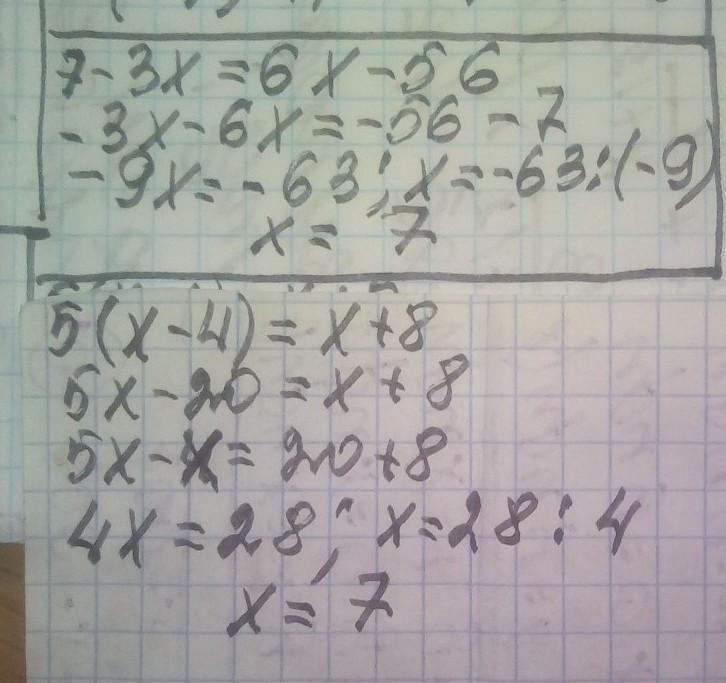 7-3x=6x-56
-3x-6x=-56-7
-9x=-63; x=-63:(-9)
x= 7
5(x-4)= x+8
5x-20=x+8
5x-x=20+8
4x=28; x=28:4
x= 7